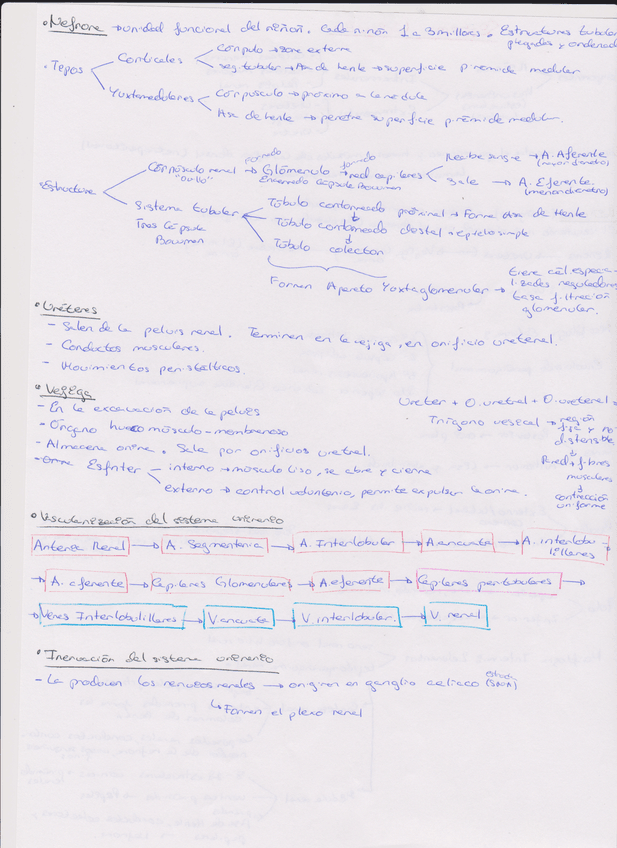 • Nefrona → unidad funcional del riñón. Cada riñón 1 a 3 millones. Estructuras tubular
plegadas y ordenad
• Tipos
Corticales
Corpúsculo → zona externa
seg. tubular → Asa de Henle → superficie pirámide medular
Yuxtamedulares
Corpúsculo → próximo a la médula
Asa de Henle → penetra superficie pirámide medular.
Estructura
Corpúsculo renal → Glomérulo → red capilares
"Ovillo"
formado
formado
Encerrado Cápsula Bowman
Recibe sangre → A. Aferente
(mayor diámetro)
Sale → A. Eferente.
(menor diámetro)
Sistema tubular
Tras Cápsula
Bowman
Túbulo contorneado proximal → Forma Asa de Henle
Túbulo contorneado distal → epitelio simple
Túbulo colector
Forman Aparato Yuxtaglomerular →
tiene cél especia-
lizadas reguladoras
tasa filtración
glomerular.
• Uréteres
- Salen de la pelvis renal. Terminan en la vejiga, en orificio ureteral.
- Conductos musculares.
- Movimientos peristálticos.
• Vejiga
- En la excavación de la pelvis
- Órgano hueco músculo-membranoso
- Almacena orina. Sale por orificios uretral.
- Esfínter
interno → músculo liso, se abre y cierra
externo → control voluntario, permite expulsar la orina.
Ureter + O. uretral + O. ureteral =
Trígono vesical → región
fija y no
distensible
Pared + fibras
musculares
contracción
uniforme
• Vascularización del sistema urinario
Arteria Renal → A. Segmentaria → A. Interlobular → A. arcuata → A. interlobu-
lillares
→ A. aferente → Capilares Glomerulares → A. eferente → Capilares peritubulares →
→ Venas Interlobulillares → V. arcuata → V. interlobular. → V. renal
• Inervación del sistema urinario
- La producen los nervios renales → origen en ganglio celíaco (SNA)
Forman el plexo renal